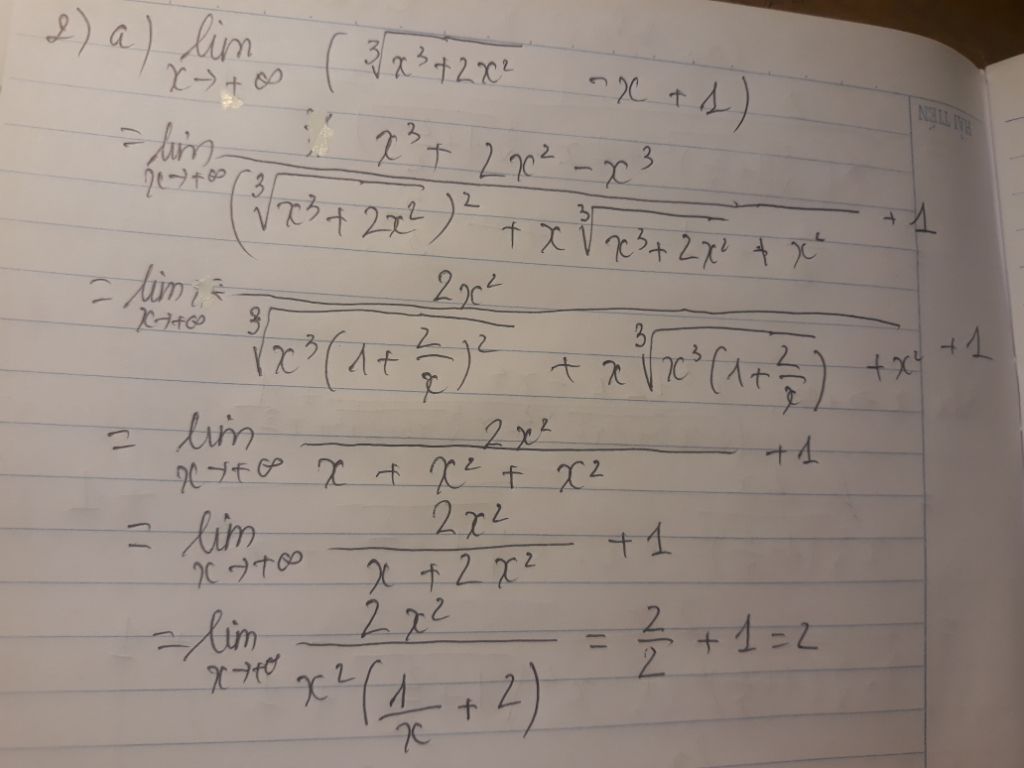 2) a) lim x→+∞ (∛(x³+2x²) -x + 1)
= lim x→+∞ (x³ + 2x² - x³) / ((∛(x³+2x²))² + x∛(x³+2x²) + x²) + 1
= lim x→+∞ = 2x² / (∛(x³(1+2/x)²) + x∛(x³(1+2/x)) + x²) + 1
= lim x→+∞ 2x² / (x + x² + x²) + 1
= lim x→+∞ 2x² / (x + 2x²) + 1
= lim x→+∞ 2x² / (x²(1/x + 2)) = 2/2 + 1 = 2
HẢI TIẾN